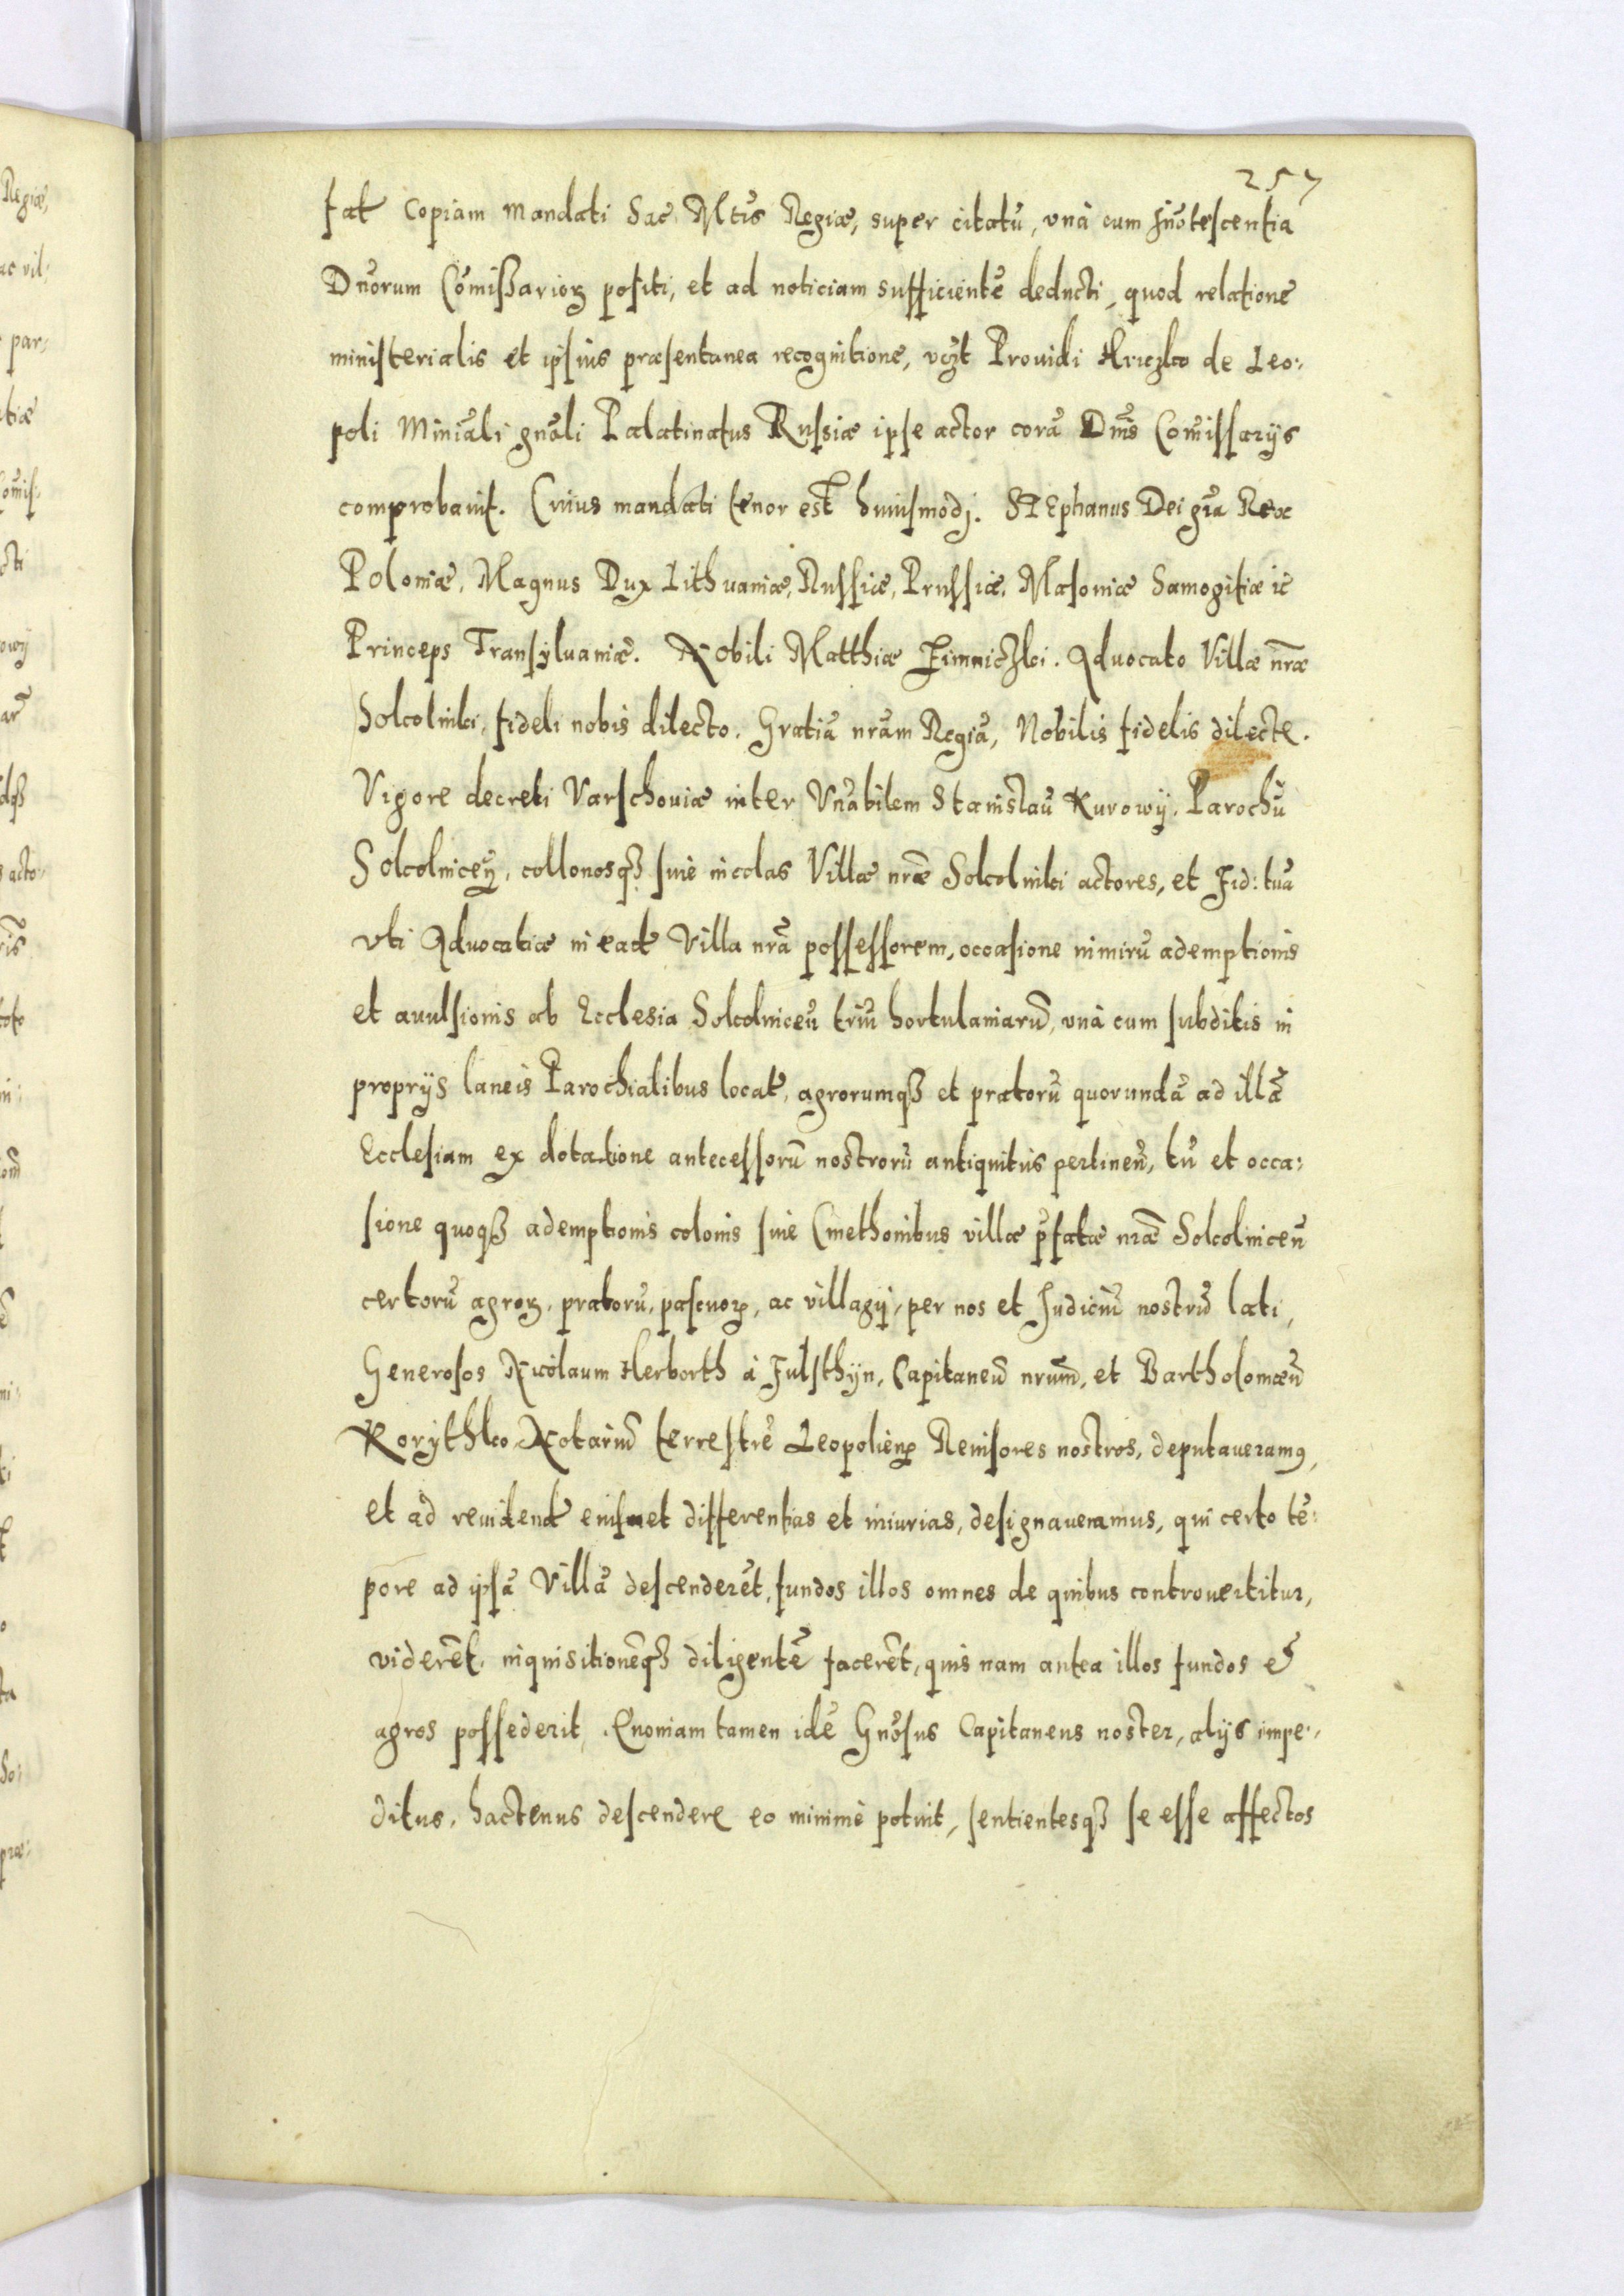 257
fat Copiam Mandati Sac Mtis Regiæ, super citatũ, vnà cum Iñotescentia
Dnorum Cõmissarioꝝ positi, et ad noticiam sufficientẽ deducti, quod relatione
ministerialis et ipsius præsentanea recognitione, vczt Prouidi Hriczko de Leo:
poli Miniãli gnãli Palatinatus Russiæ ipse actor corã Dnis Cõmissarijs
comprobauit. Cuius mandati tenor est huiusmodj. STEphanus Dei grã Rex
Poloniæ, Magnus Dux Lithuaniæ, Russiæ, Prussiæ, Masouiæ Samogitiæ ic
Princeps Transyluaniæ. Nobili Matthiæ Zimniczki. Aduocato Villæ nr̃æ
Sokolniki, fideli nobis dilecto. Gratiã nrãm Regiã, Nobilis fidelis dilecte.
Vigore decreti Varschouiæ inter Vnãbilem Stanislaũ Kurowÿ, Parochũ
Sokolniceñ, collonosqꝫ siue incolas Villæ nrãe Sokolniki actores, et Fid: tua
vti Aduocatiæ in ead Villa nrã possessorem, occasione nimirũ ademptionis
et auulsionis ab Ecclesia Sokolniceñ triũ hortulaniarũ, vnà cum subditis in
proprijs laneis Parochialibus locat, agrorumqꝫ et pratorũ quorundã ad illã
Ecclesiam ex dotatione antecessorũ nostrorũ antiquitùs pertineñ, tũ et occa:
sione quoqꝫ ademptionis colonis siue Cmethonibus villæ p̃fatæ nrãe Sokolniceñ
certorũ agroꝝ, pratorũ, pascuoꝝ, ac villagij, per nos et Iudiciũ nostrũ lati,
Generosos Nicolaum Herborth à Fulsthÿn, Capitaneũ nrũm, et Bartholomæũ
Korÿthko Notariũ terrestrẽ Leopolieñ Reuisores nostros, deputaueramꝰ,
et ad reuidend eiusmet differentias et iniurias, designaueramus, qui certo tẽ:
pore ad ipsã Villã descenderẽt, fundos illos omnes de quibus controuertitur,
viderẽt, inquisitionẽqꝫ diligentẽ facerẽt, quis nam antea illos fundos et
agros possederit, Quoniam tamen idẽ Gnõsus Capitaneus noster, alijs impe:
ditus, hactenus descendere eo minimè potuit, sentientesqꝫ se esse affectos